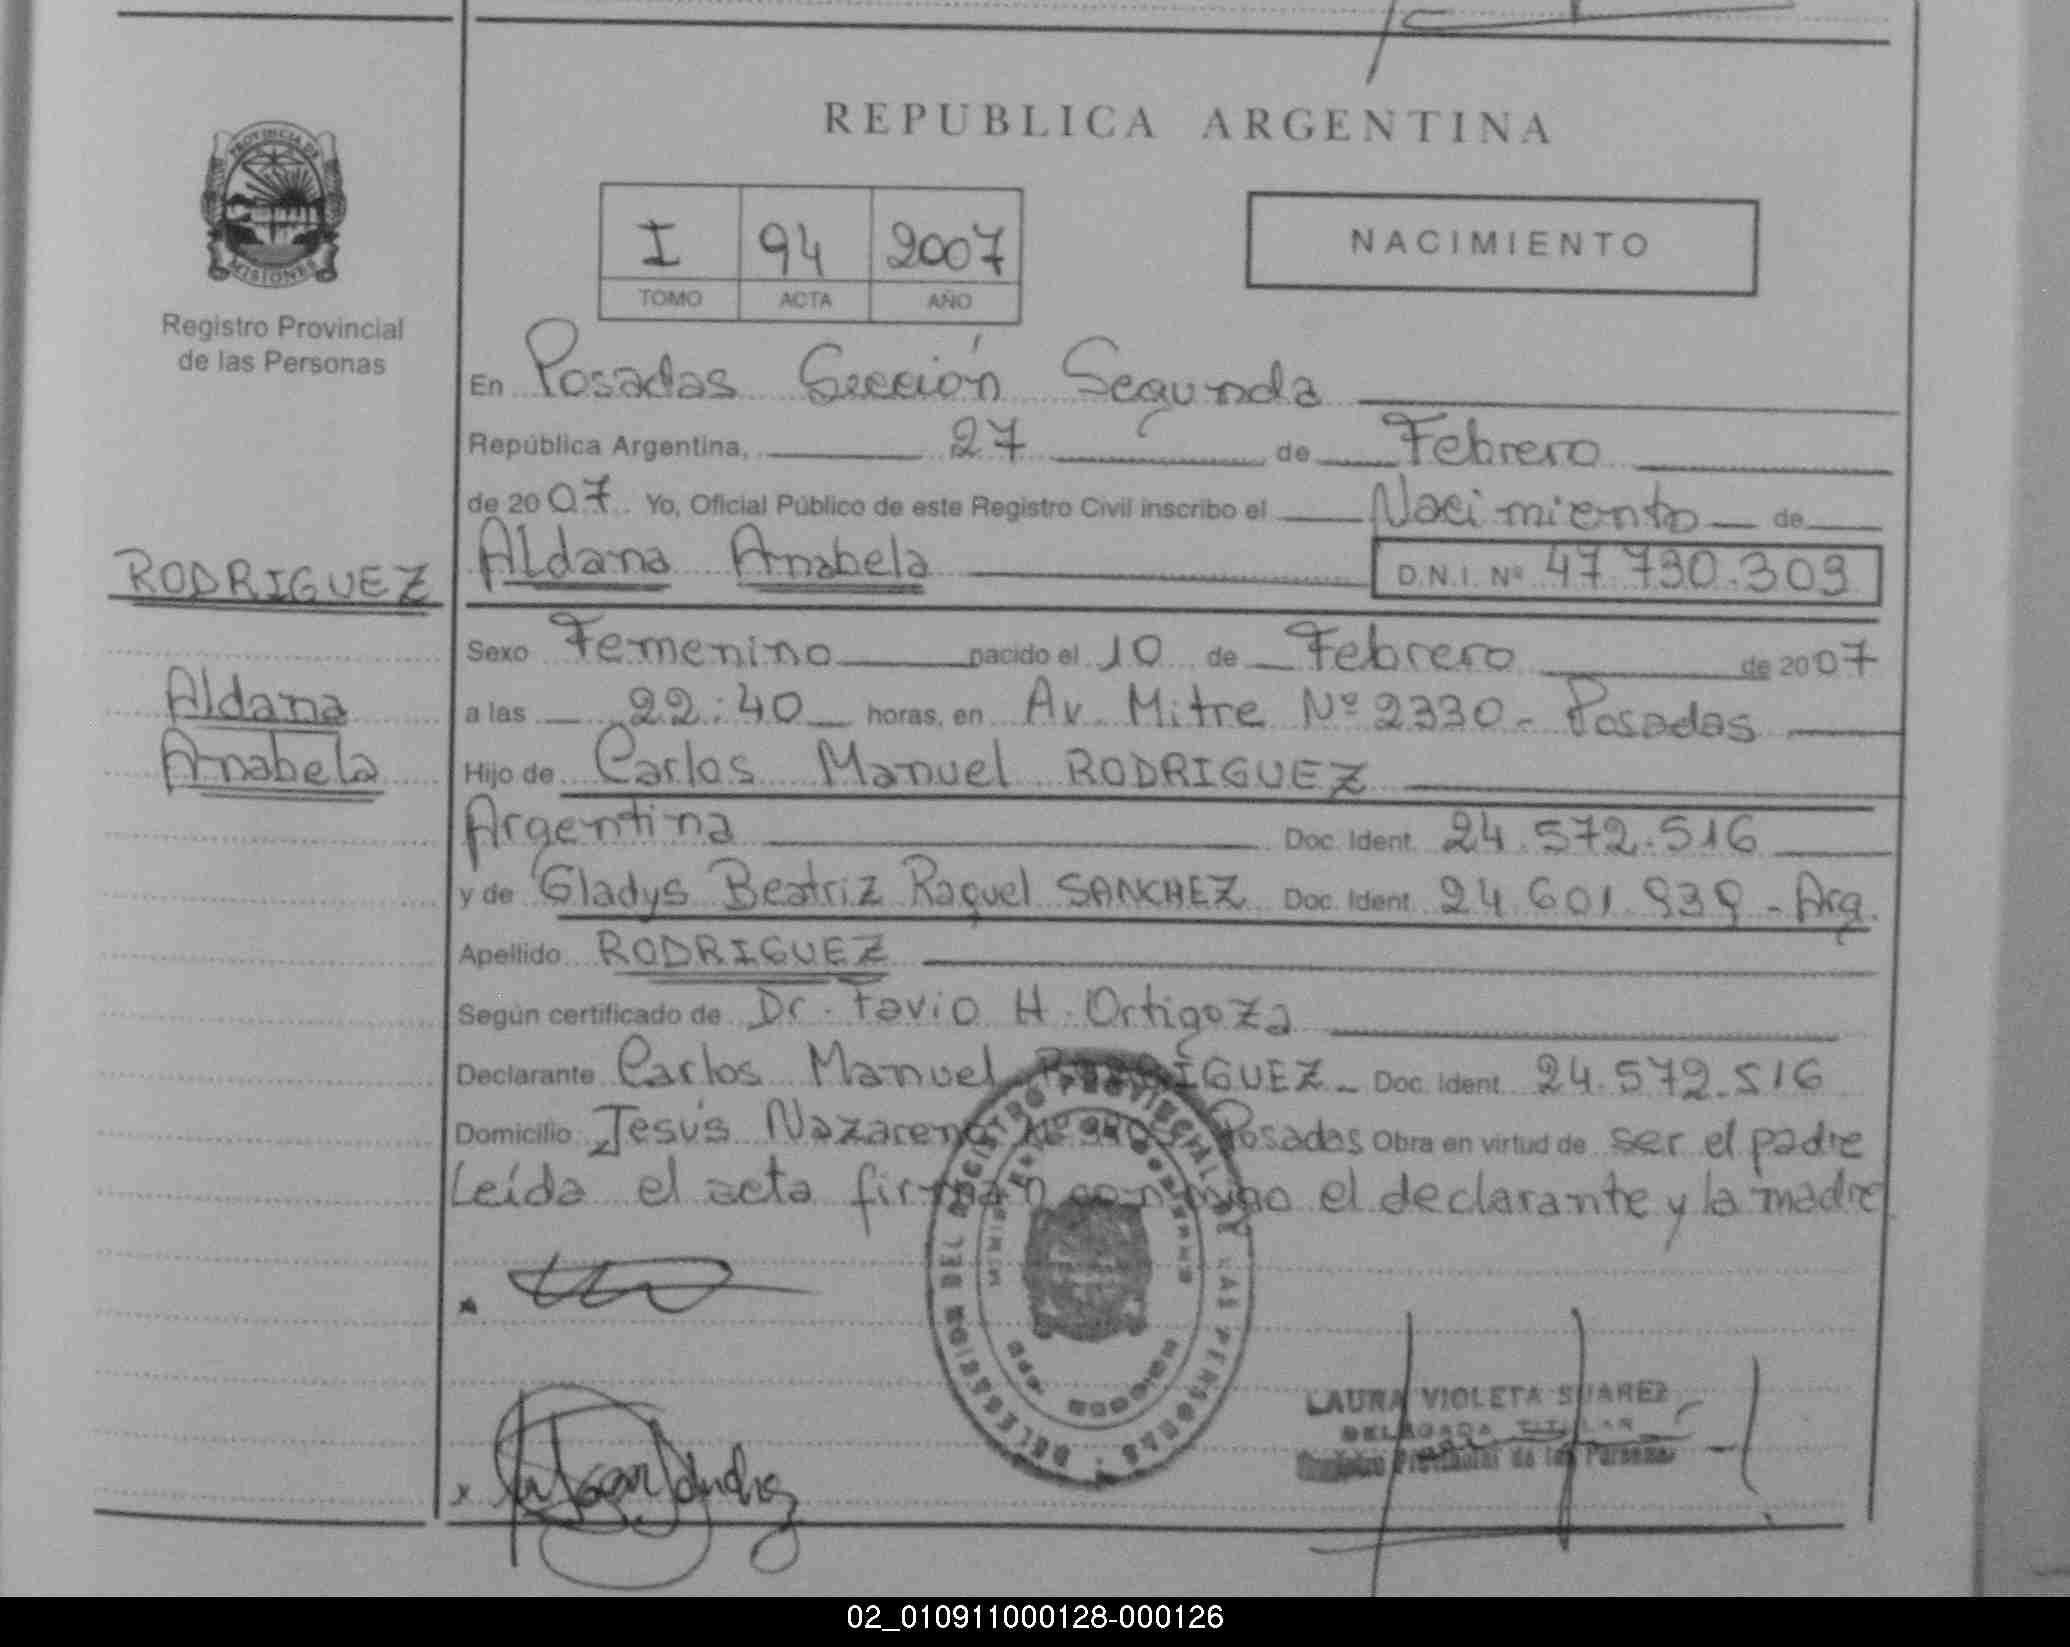 REPUBLICA ARGENTINA
PROVINCIA DE
MISIONES
Registro Provincial
de las Personas
I 94 2007
TOMO ACTA AÑO
NACIMIENTO
En Posadas Sección Segunda
República Argentina, 27 de Febrero
de 2007. Yo, Oficial Público de este Registro Civil inscribo el Nacimiento de
RODRIGUEZ
Aldana
Anabela
Aldana Anabela D.N.I. Nº 47.730.309
Sexo Femenino nacido el 10 de Febrero de 2007
a las 22:40 horas, en Av. Mitre Nº 2330 - Posadas
Hijo de Carlos Manuel RODRIGUEZ
Argentina Doc. Ident. 24.572.516
y de Gladys Beatriz Raquel SANCHEZ Doc. Ident. 24.601.939 - Arg.
Apellido RODRIGUEZ
Según certificado de Dr. Favio H. Ortigoza
Declarante Carlos Manuel RODRIGUEZ - Doc. Ident. 24.572.516
Domicilio Jesús Nazareno Nº Posadas Obra en virtud de ser el padre
Leída el acta firman conmigo el declarante y la madre
LAURA VIOLETA SUAREZ
DELEGADA TITULAR
Registro Provincial de las Personas
02_010911000128-000126